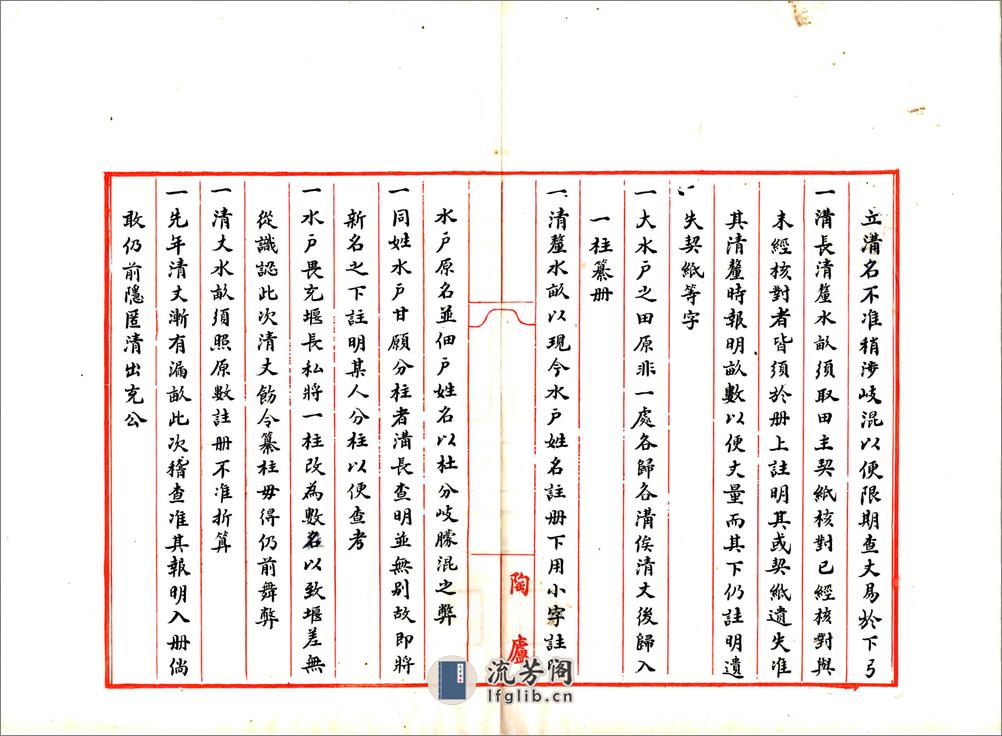 立溝名不准稍涉岐混以便限期查丈易於下弓
一溝長清釐水畝須取田主契紙核對已經核對與
未經核對者皆須於册上註明其或契紙遺失准
其清釐時報明畝數以便丈量而其下仍註明遺
失契紙等字
一大水戶之田原非一處各歸各溝俟清丈後歸入
一柱纂册
一清釐水畝以現今水戶姓名註册下用小字註
水戶原名並佃戶姓名以杜分岐朦混之弊
一同姓水戶甘願分柱者溝長查明並無别故即將
新名之下註明某人分柱以便查考
一水戶畏充堰長私將一柱改為數名以致堰差無
從識認此次清丈飭令纂柱毋得仍前舞弊
一清丈水畝須照原數註册不准折算
一先年清丈漸有漏畝此次稽查准其報明入册倘
敢仍前隱匿清出充公
陶廬
流芳阁
lfglib.cn